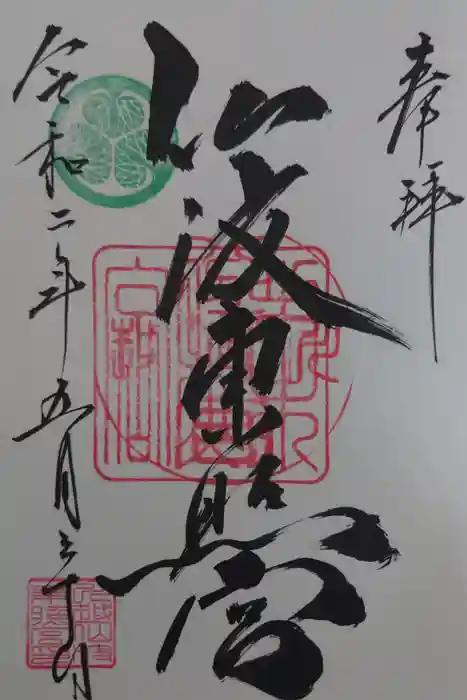 奉拝
仙波東照宮
令和二年五月三十日